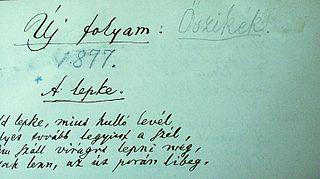 Új folyam: Őszikék.
1877.
*
A lepke.
ld lepke, mint hulló levél,
lyet tovább legyint a szél,
m száll virágra lepni még,
ak lenn, az út porán libeg.